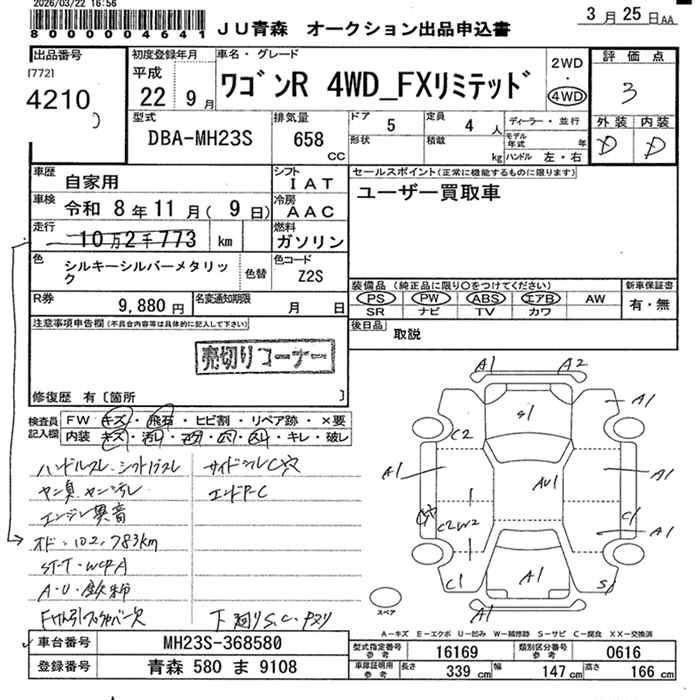 2026/03/22 16:56
800004641
JU青森 オークション出品申込書
3月25日AA
出品番号
[772]
4210
初度登録年月
平成
22 9月
車名・グレード
ワゴンR 4WD_FXリミテッド
2WD
・
4WD
評価点
3
外装 内装
D D
型式
DBA-MH23S
排気量
658
CC
ドア 5
形状
定員 4 人
積載 kg
ディーラー・並行
モデル年式 年
ハンドル 左・右
車歴
自家用
シフト
IAT
車検
令和 8年11月( 9日)
冷房
AAC
走行
10万2千773 km
燃料
ガソリン
色
シルキーシルバーメタリック
色替
色コード
Z2S
R券
9,880 円
名変通知期限
月 日
セールスポイント(正常に機能するものに限ります)
ユーザー買取車
装備品 (純正品に限り○をつけてください)
PS PW ABS エアB AW
SR ナビ TV カワ
新車保証書
有・無
後日品
取説
注意事項申告欄(不具合内容等は具体的に記入して下さい)
売切りコーナー
修復歴 有〔箇所 〕
検査員記入欄
FW キズ・飛石・ヒビ割・リペア跡・×要
内装 キズ・汚レ・コゲ・穴・スレ・キレ・破レ
ハンドルスレ シフトノブスレ
サイドシルC穴
エンドP-C
エンジン異音
オド・102,783km
下廻りS.C.
A1 A2
S1
A1
C2
A1
A1
AU1
C2W2
C1
A1
C1
A1
S1
A1
スペア
A-キズ E-エクボ U-凹み W-補修跡 S-サビ C-腐食 XX-交換済
車台番号
MH23S-368580
登録番号
青森 580 ま 9108
型式指定番号
参考
16169
類別区分番号
参考
0616
車庫証明用
参考
長さ 339 cm
幅 147 cm
高さ 166 cm